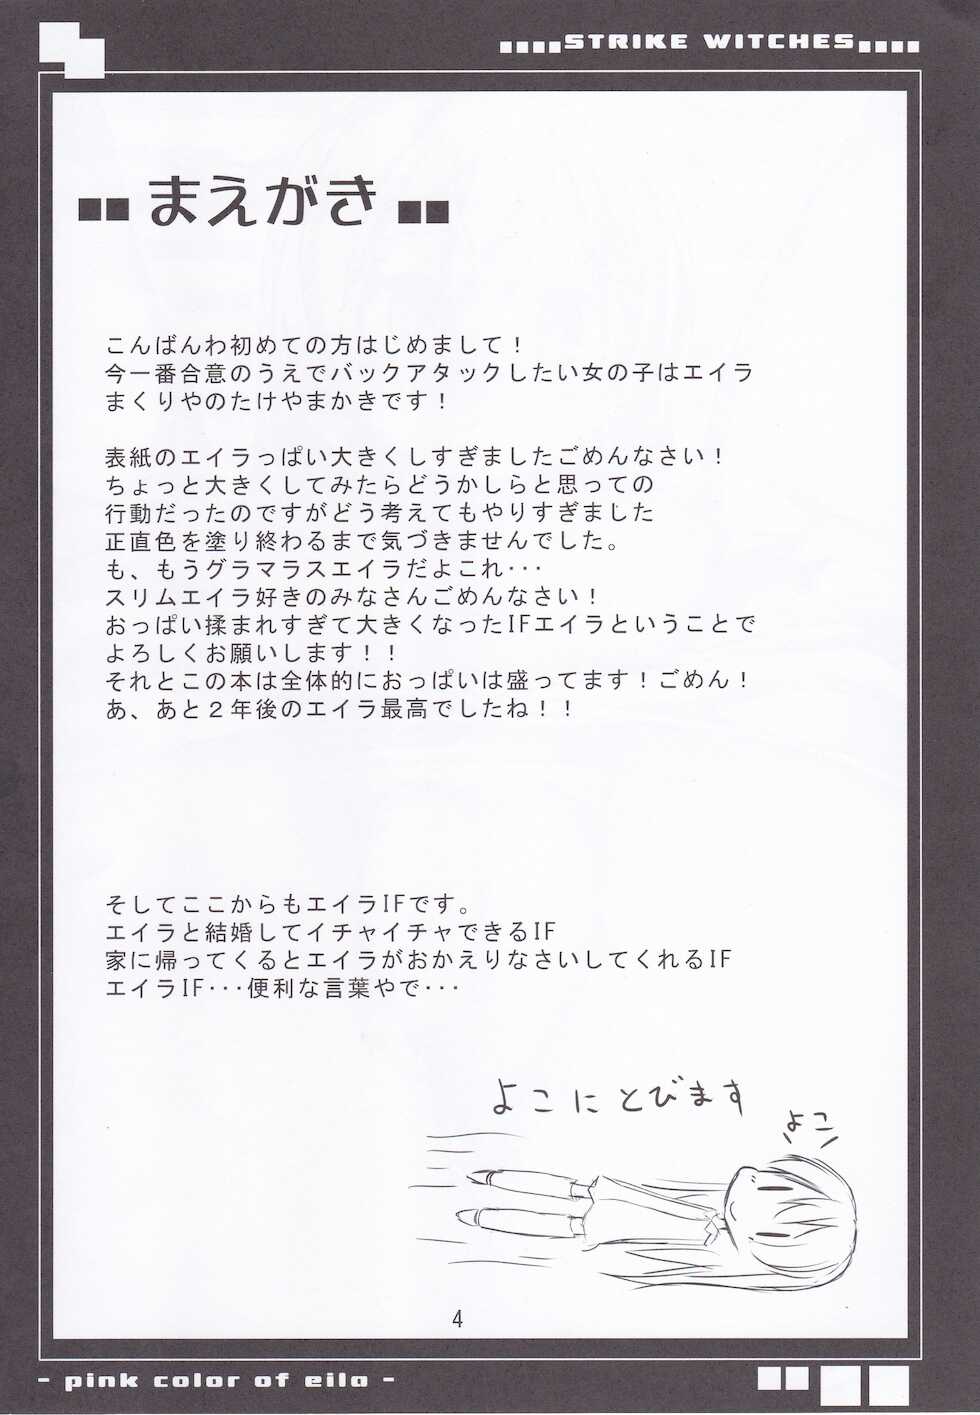 STRIKE WITCHES
まえがき
こんばんわ初めての方はじめまして！
今一番合意のうえでバックアタックしたい女の子はエイラ
まくりやのたけやまかきです！
表紙のエイラっぱい大きくしすぎましたごめんなさい！
ちょっと大きくしてみたらどうかしらと思っての
行動だったのですがどう考えてもやりすぎました
正直色を塗り終わるまで気づきませんでした。
も、もうグラマラスエイラだよこれ･･･
スリムエイラ好きのみなさんごめんなさい！
おっぱい揉まれすぎて大きくなったIFエイラということで
よろしくお願いします！！
それとこの本は全体的におっぱいは盛ってます！ごめん！
あ、あと２年後のエイラ最高でしたね！！
そしてここからもエイラIFです。
エイラと結婚してイチャイチャできるIF
家に帰ってくるとエイラがおかえりなさいしてくれるIF
エイラIF･･･便利な言葉やで･･･
よこにとびます
よこ
4
- pink color of eila -